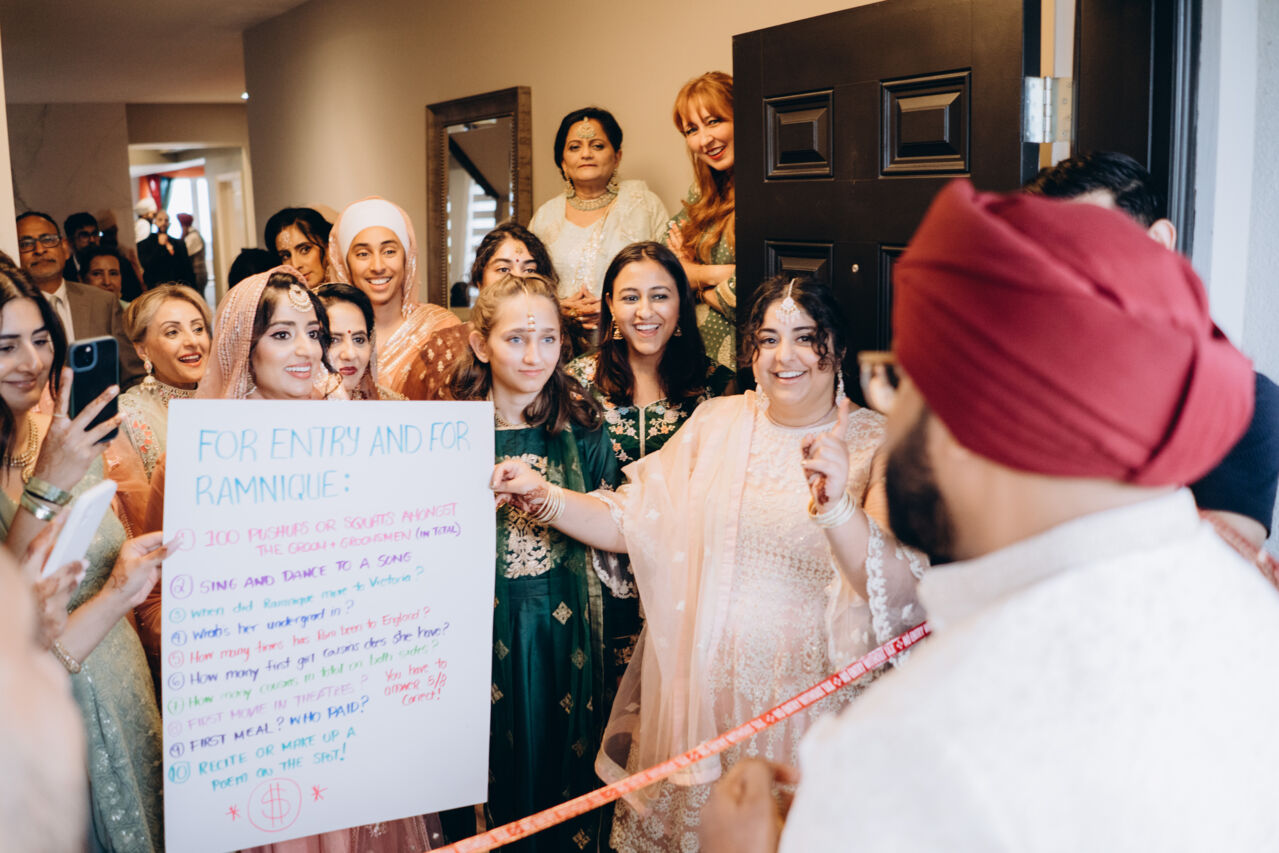 FOR ENTRY AND FOR
RAMNIQUE:
① 100 PUSHUPS OR SQUATS AMONGST
THE GROOM + GROOMSMEN (IN TOTAL)
② SING AND DANCE TO A SONG
③ When did Ramnique move to Victoria?
④ What's her undergrad in?
⑤ How many times has Ram been to England?
⑥ How many first girl cousins does she have?
⑦ How many cousins in total on both sides?
⑧ FIRST MOVIE IN THEATRES?
You have to
answer 5/8
correct!
⑨ FIRST MEAL? WHO PAID?
⑩ RECITE OR MAKE UP A
POEM ON THE SPOT!
* $ *